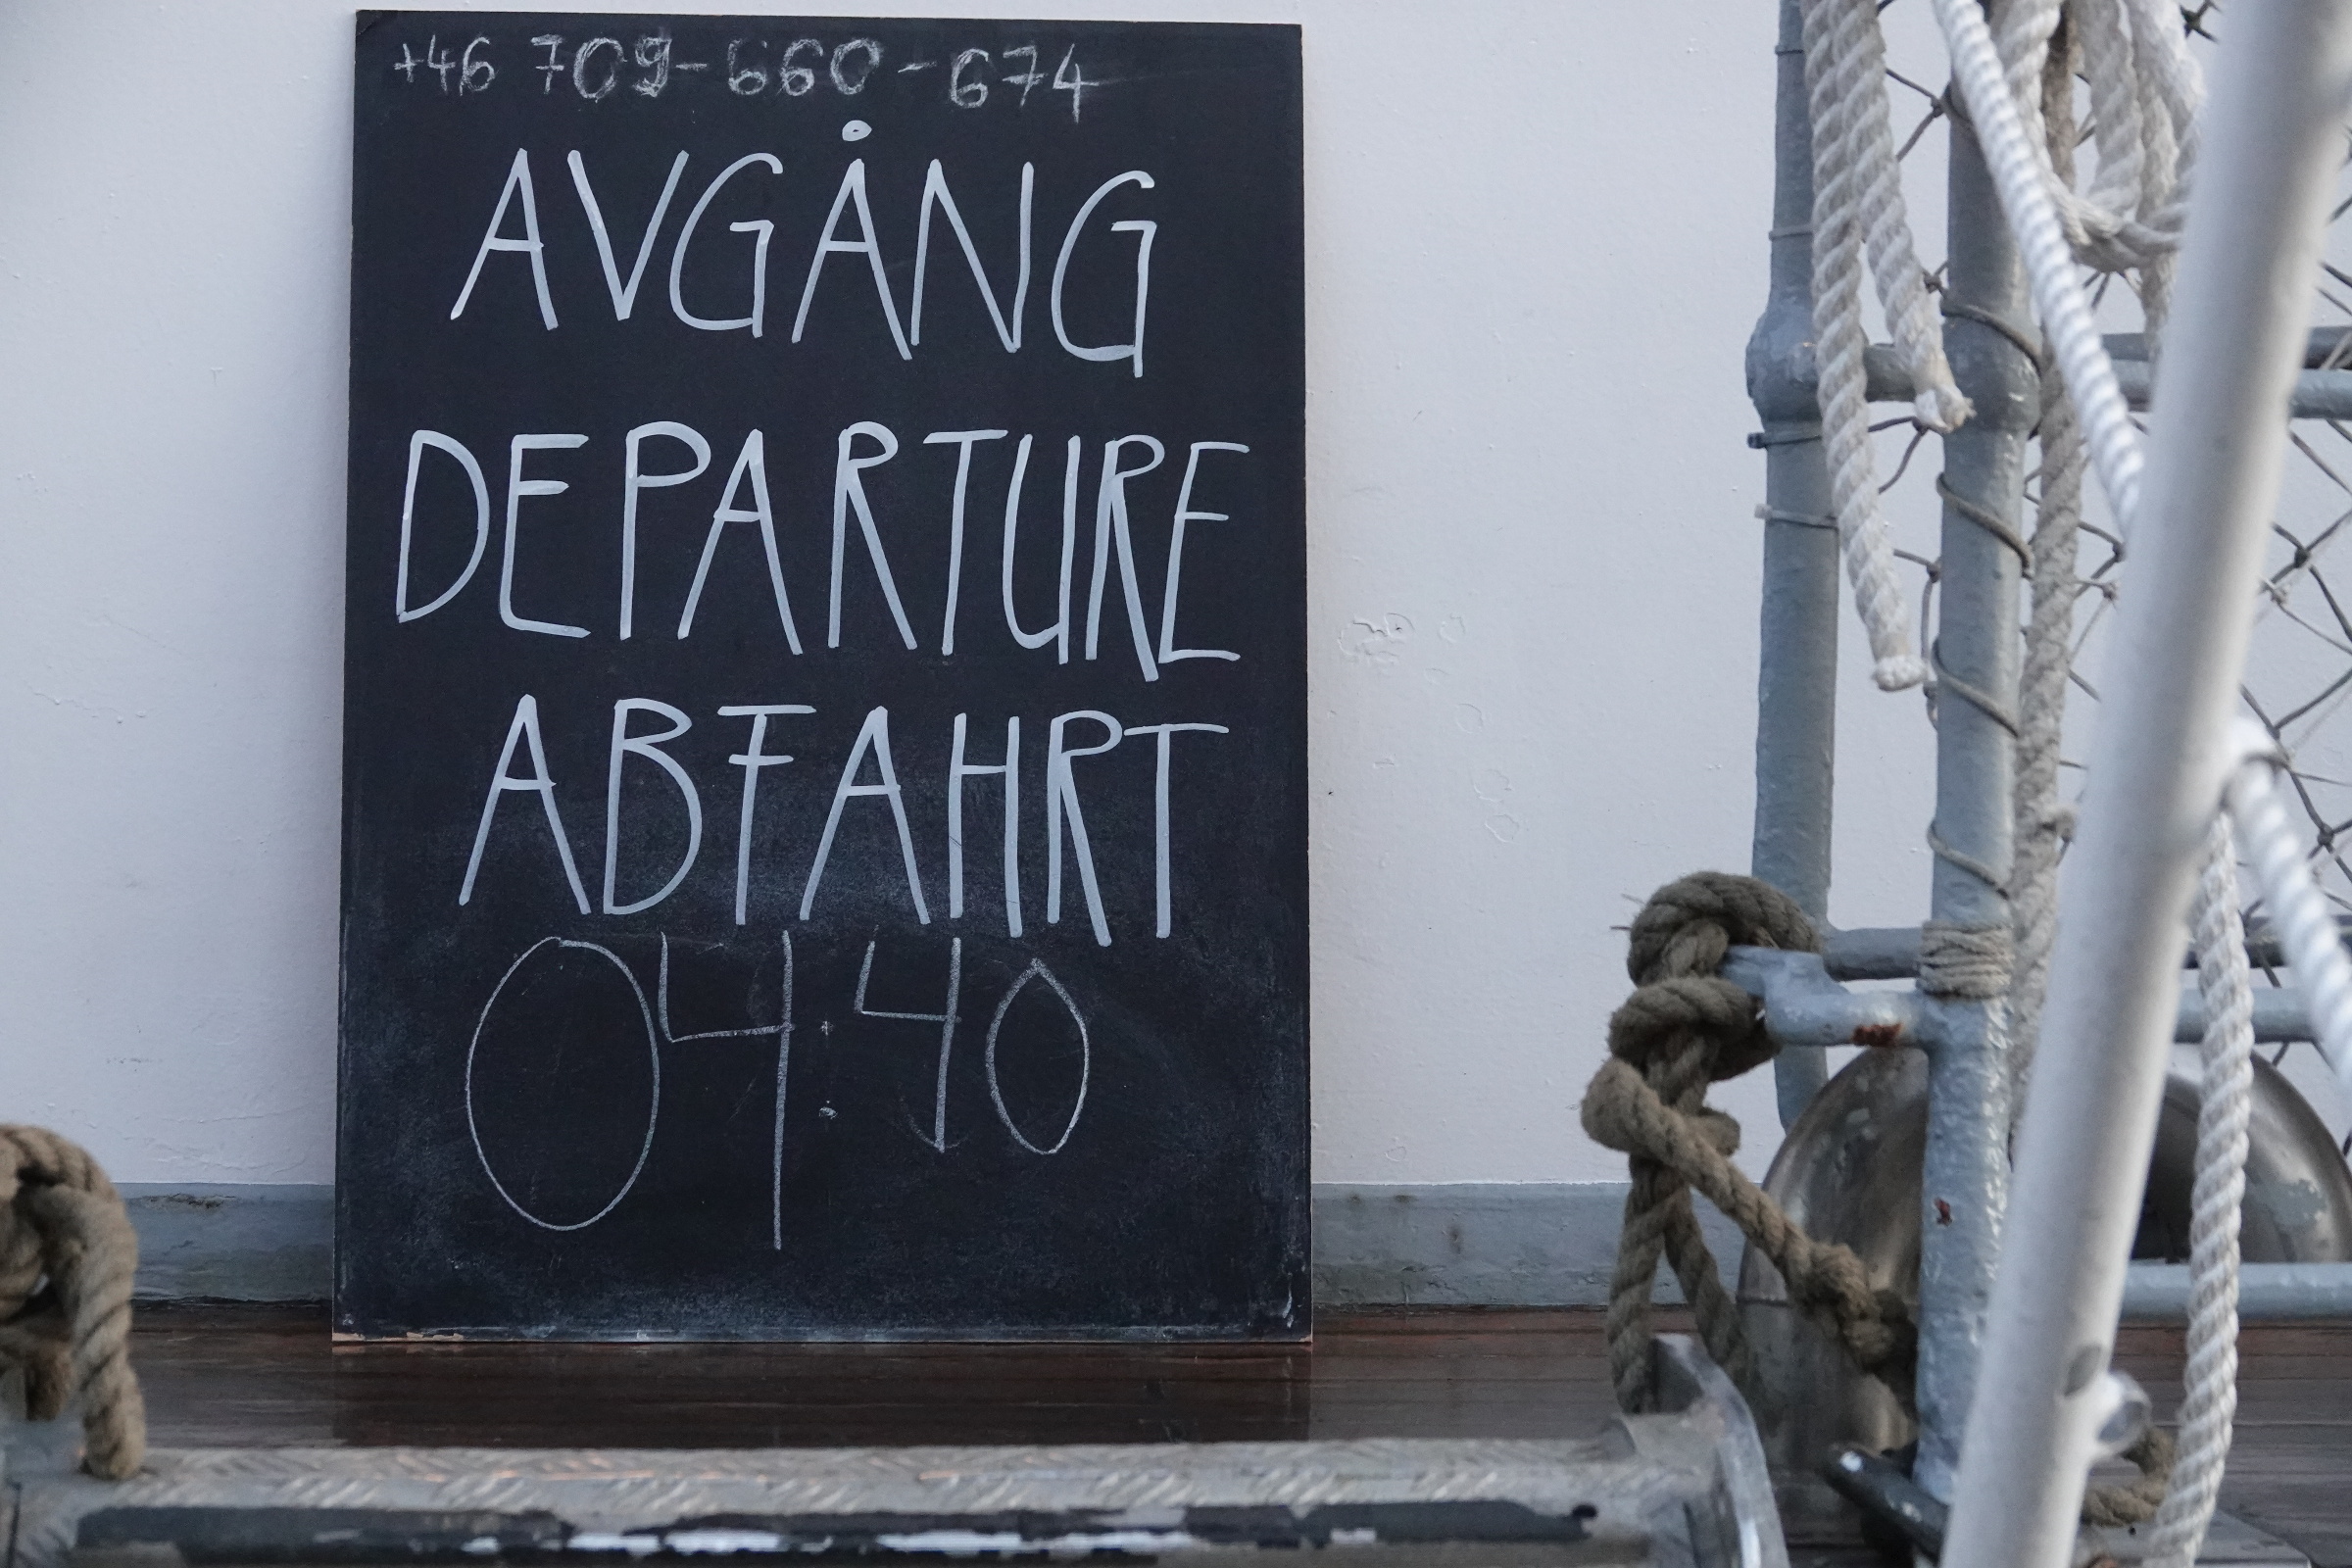 +46 709-660-674
AVGÅNG
DEPARTURE
ABFAHRT
04:40